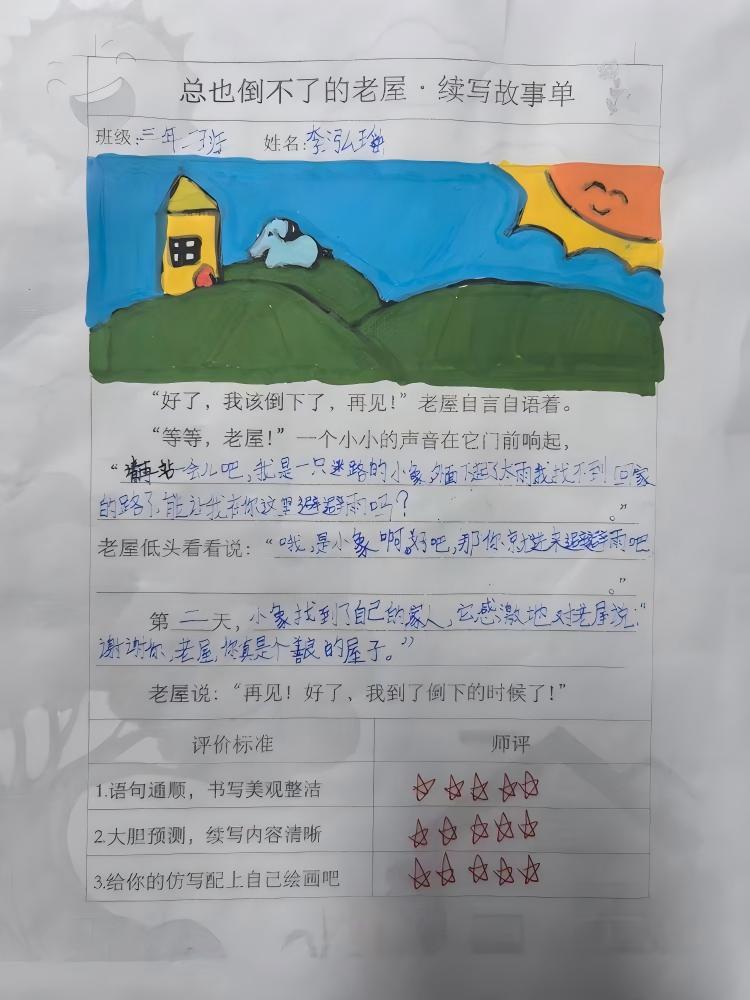 总也倒不了的老屋·续写故事单
班级:三年二班 姓名:李泓
“好了，我该倒下了，再见！”老屋自言自语着。
“等等，老屋！”一个小小的声音在它门前响起，
“再站一会儿吧，我是一只迷路的小象,外面下起了大雨我找不到回家
的路了,能让我在你这里避避雨吗？。”
老屋低头看看说：“哦,是小象啊,好吧,那你就进来避避雨吧
。”
第二天，小象找到了自己的家人,它感激地对老屋说:“
谢谢你,老屋,你真是个善良的屋子。”
老屋说：“再见！好了，我到了倒下的时候了！”
评价标准 师评
1.语句通顺，书写美观整洁
2.大胆预测，续写内容清晰
3.给你的仿写配上自己绘画吧